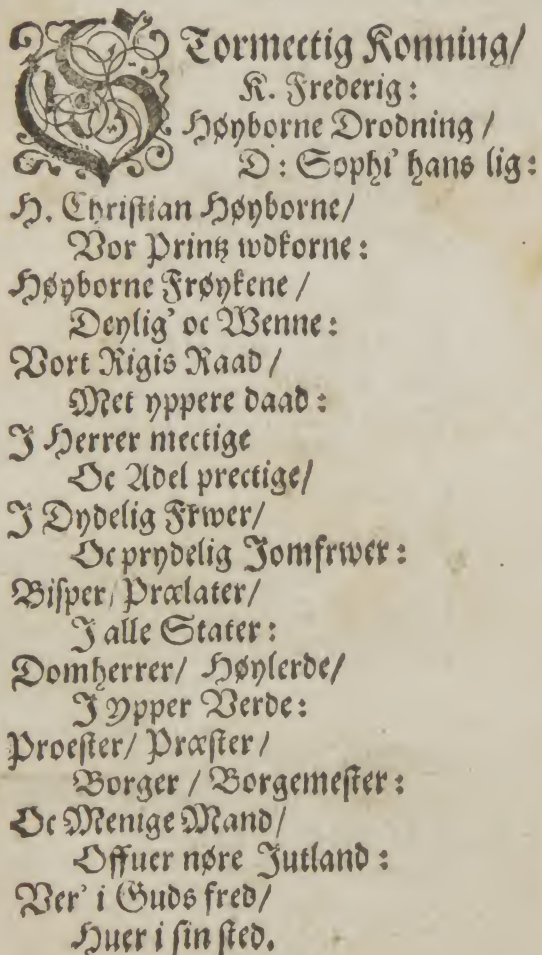 STormectig Konning/
K. Frederig:
Høyborne Drodning/
D: Sophi' hans lig:
H. Christian Høyborne/
Vor Printz wdkorne:
Høyborne Frøykene/
Deylig' oc Wenne:
Vort Rigis Raad/
Met yppere daad:
I Herrer mectige
Oc Adel prectige/
I Dydelig Frwer/
Oc prydelig Jomfrwer:
Bisper/ Prælater/
I alle Stater:
Domherrer/ Høylerde/
I Ypper Verde:
Proester/ Præster/
Borger/ Borgemester:
Oc Menige Mand/
Offuer nøre Jutland:
Ver' i Guds fred/
Huer i sin sted.